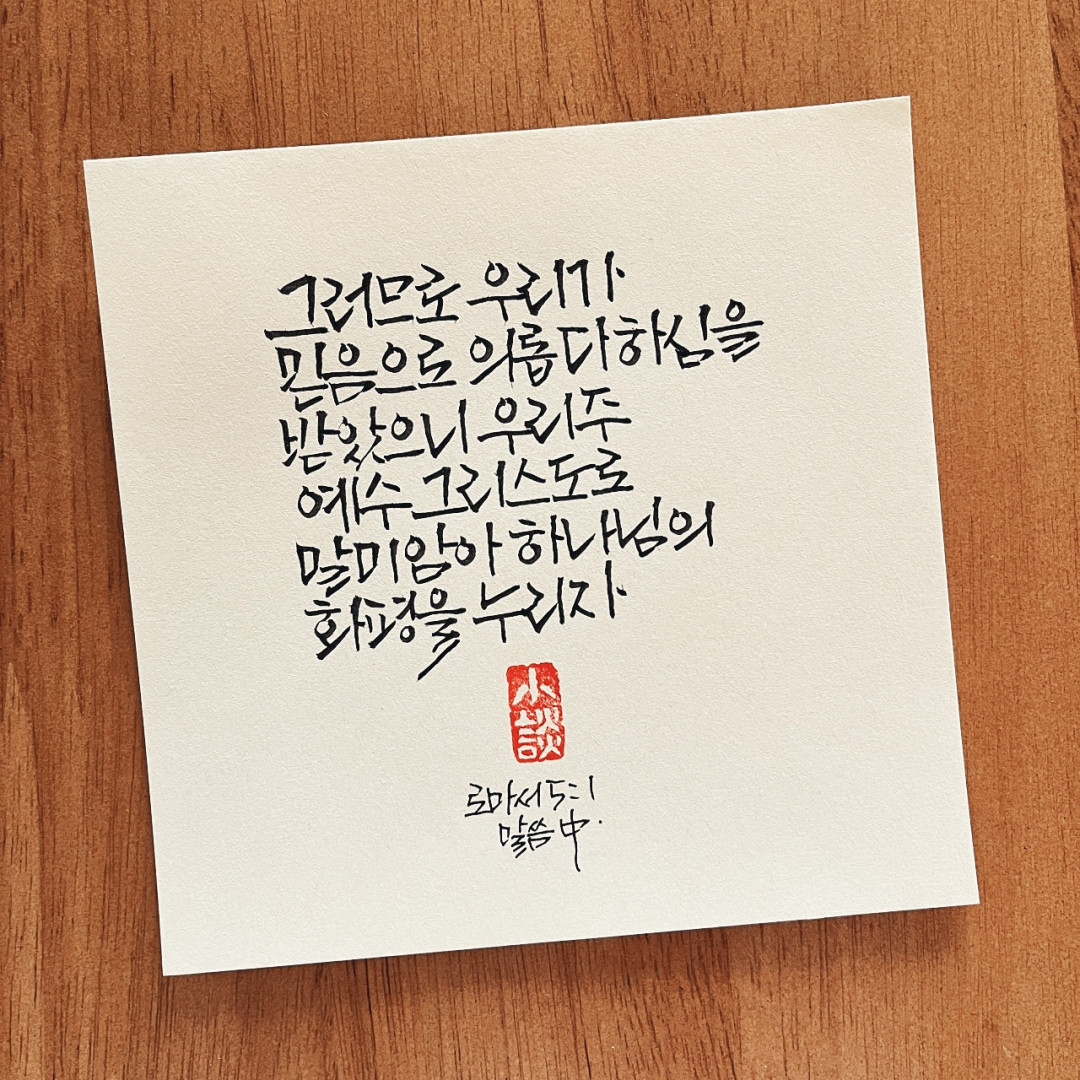 그러므로 우리가
믿음으로 의롭다 하심을
받았으니 우리 주
예수 그리스도로
말미암아 하나님의
화평을 누리자
小談
로마서 5:1
말씀 中.